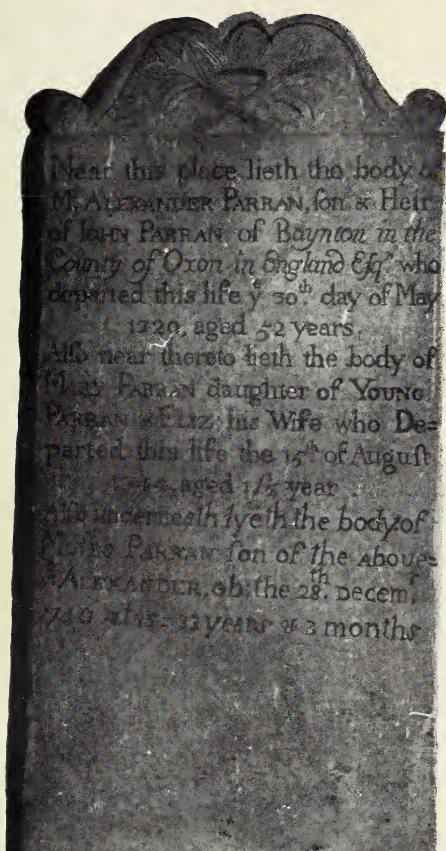 Near this place lieth the body of
Mr ALEXANDER PARRAN, ſon & Heir
of IOHN PARRAN of Baynton in the
County of Oxon in England Eſqr who
departed this life ye 30th. day of May
1729, aged 52 years.
Alſo near thereto lieth the body of
MARY PARRAN daughter of YOUNG
PARRAN & ELIZ his Wife who De=
parted this life the 15th of Auguſt
aged 1/2 year
Alſo underneath lyeth the body of
PARRAN ſon of the ABOVE=
ALEXANDER, ob: the 28th. DECEMr.
1740 years & 3 months